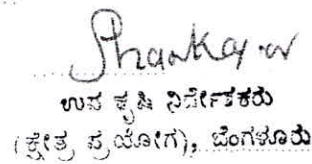 Shankar.w
ಉಪ ಕೃಷಿ ನಿರ್ದೇಶಕರು
(ಕ್ಷೇತ್ರ ಪ್ರಯೋಗ), ಬೆಂಗಳೂರು